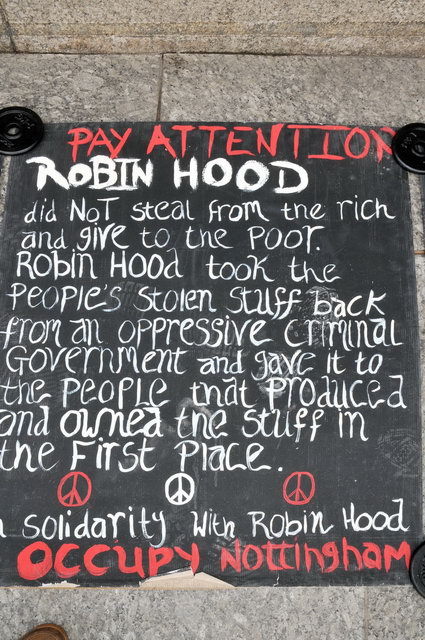 PAY ATTENTION
ROBIN HOOD
did NOT steal from the rich
and give to the POOR.
Robin Hood took the
PEOPLE'S Stolen Stuff back
from an oppressive criminal
Government and gave it to
the PEOPLE that Produced
and owned the stuff in
the First Place.
solidarity With Robin Hood
OCCUPY Nottingham